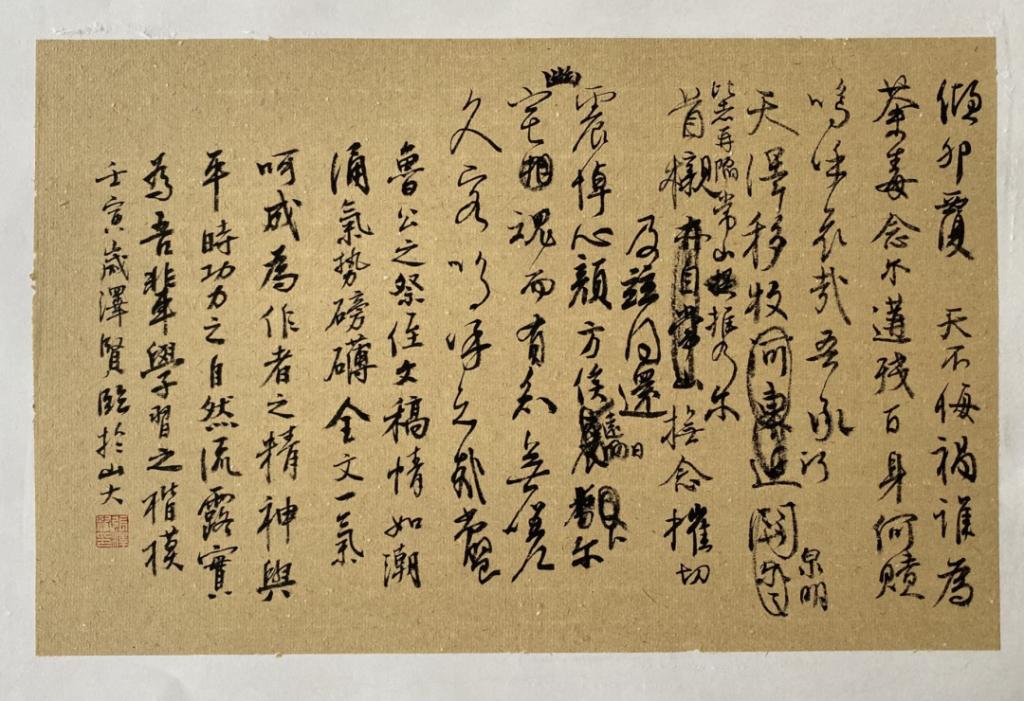 傾卵覆 天不悔禍誰為
荼毒念尔遘殘百身何贖
嗚呼哀哉吾承
泉明
天澤移牧河東近關
比者再陷常山攜 尔
首櫬亦自常山撫念摧切
及茲同還
震悼心顏方俟 尔
遠日卜
幽
宅相魂而有知無嗟
久客嗚呼哀哉尚饗
魯公之祭侄文稿情如潮
涌氣勢磅礴全文一氣
呵成為作者之精神與
平時功力之自然流露實
為吾輩學習之楷模
壬寅歲澤賢臨於山大